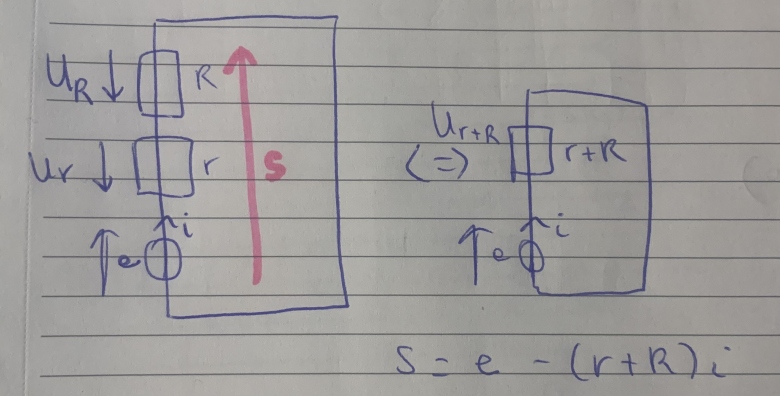 U_R R
U_r r S
i
e
U_{r+R}
(=) r+R
i
e
S = e - (r+R)i